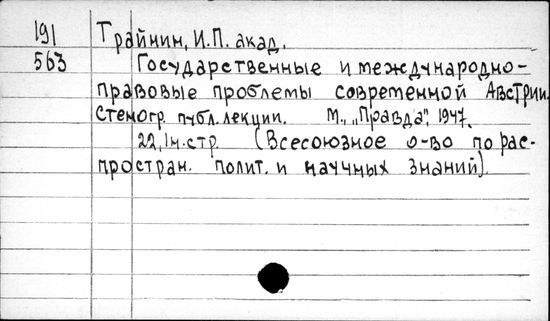 191 Трайнин, И.П. акад.
563 Государственные и международно-
правовые проблемы современной Австрии.
Стеногр. публ. лекции. М., „Правда", 1947.
22,1н.стр. (Всесоюзное о-во по рас-
простран. полит. и научных знаний).